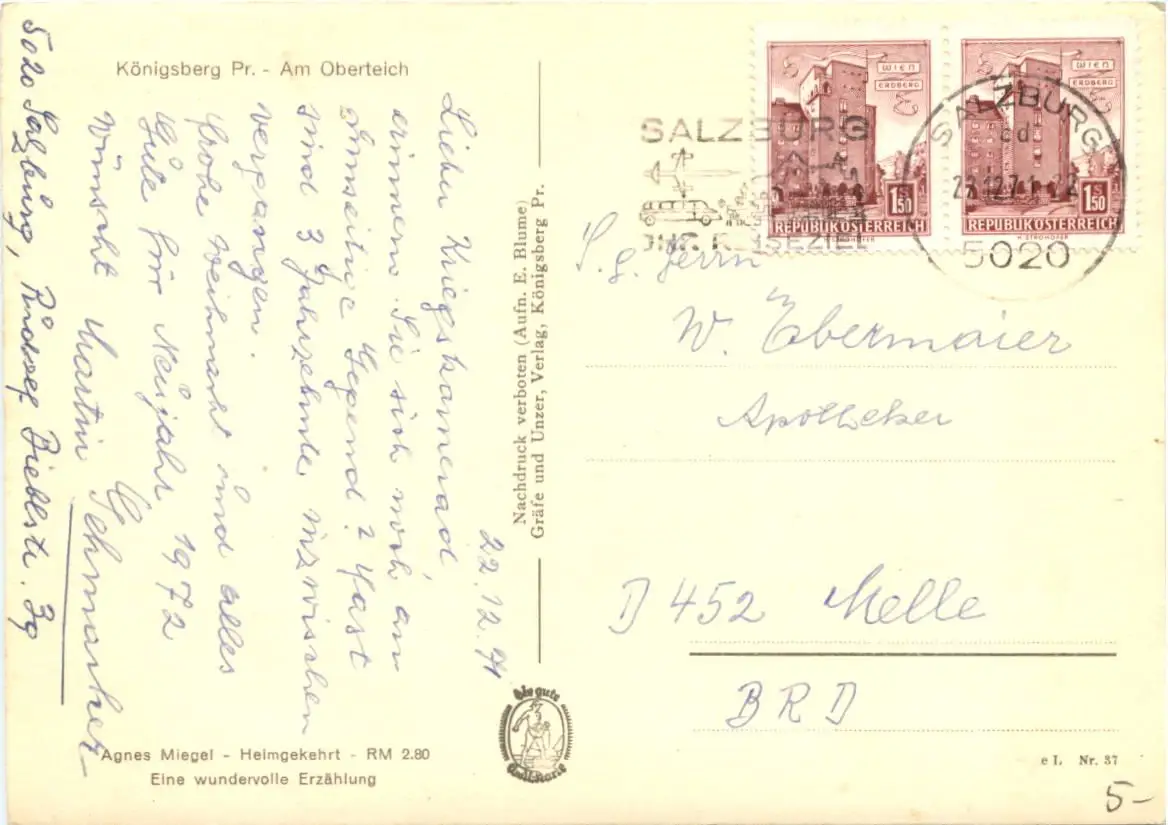 Königsberg Pr. - Am Oberteich
22.12.71
Lieber Kriegskamerad,
erinnern Sie sich noch an
umseitige Gegend? Fast
sind 3 Jahrzehnte inzwischen
vergangen.
Frohe Weihnacht und alles
Gute für Neujahr 1972
wünscht Martin
5020 Salzburg,
39
Agnes Miegel - Heimgekehrt - RM 2.80
Eine wundervolle Erzählung
Nachdruck verboten (Aufn. E. Blume)
Gräfe und Unzer, Verlag, Königsberg Pr.
die gute
WIEN
ERDBERG
1.50
S
REPUBLIK ÖSTERREICH
WIEN
ERDBERG
1.50
S
REPUBLIK ÖSTERREICH
H. STROHOFER
SALZBURG
IHR REISEZIEL
SALZBURG
5020
S. g. Herrn
W. Ebermaier
Apotheker
D 452 Melle
BRD
e L Nr. 37
5-